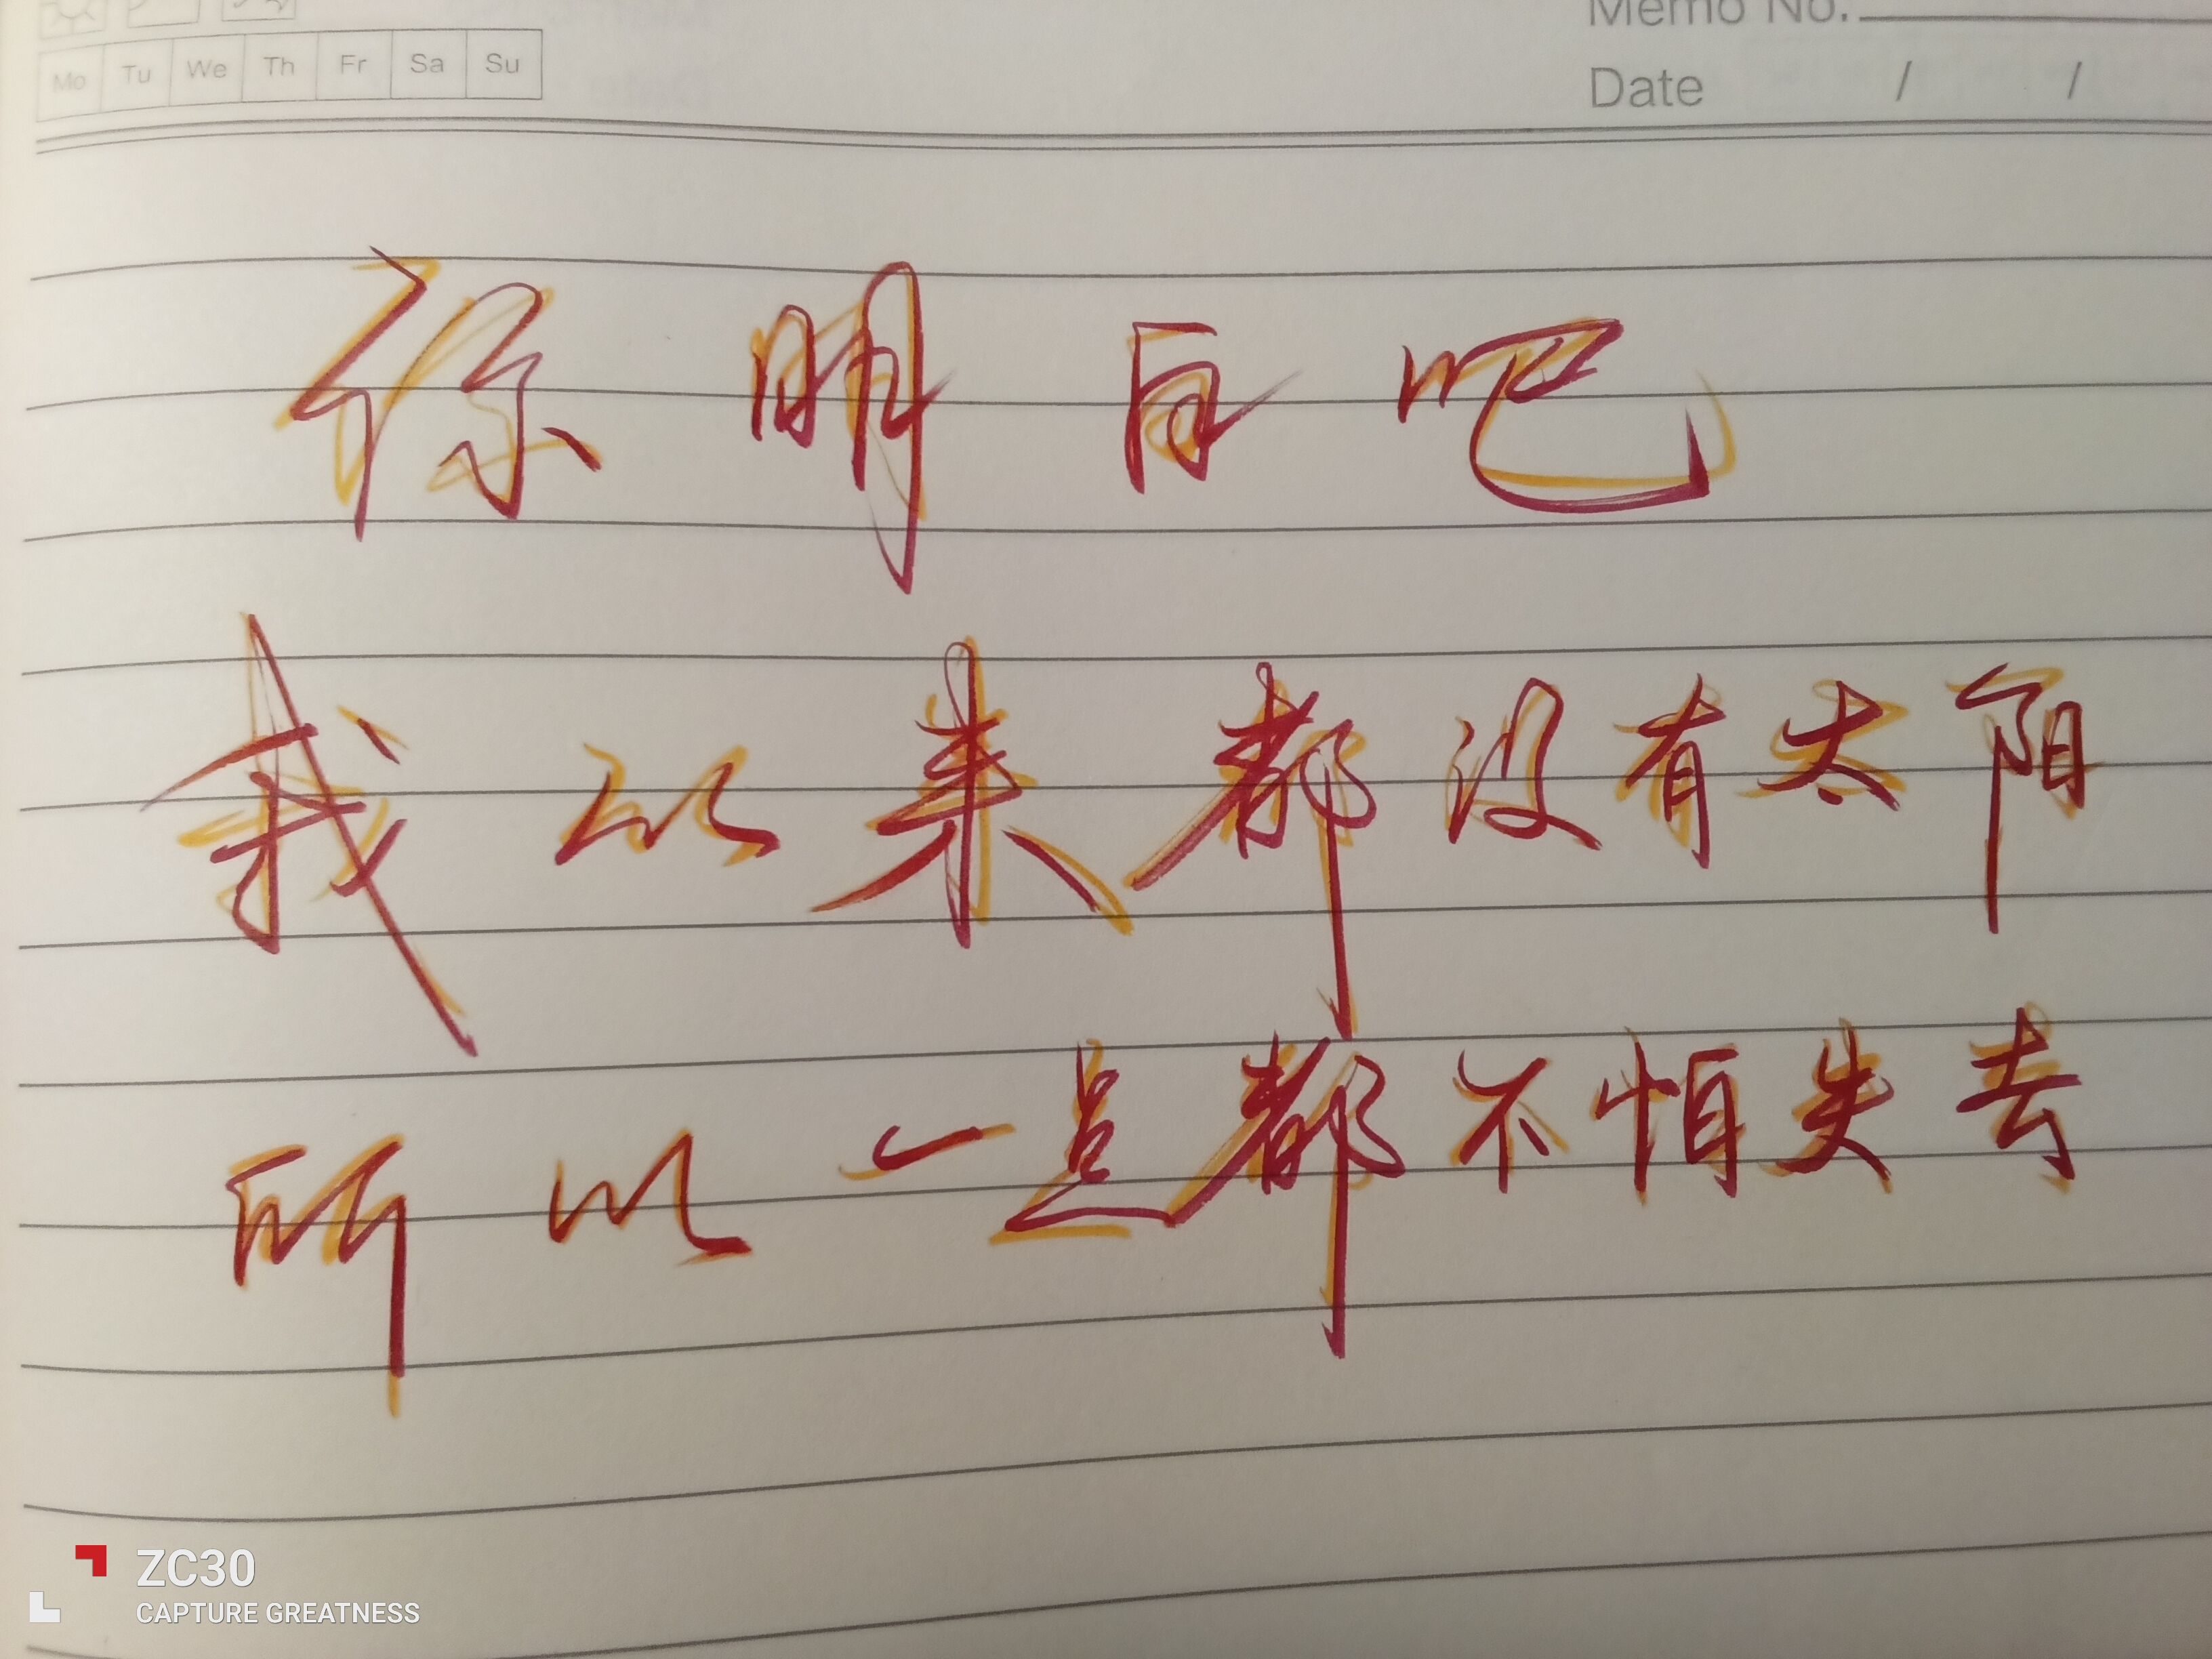 Memo No.
Mo Tu We Th Fr Sa Su
Date / /
你明白吧
我以来都没有太阳
所以一点都不怕失去
ZC30
CAPTURE GREATNESS